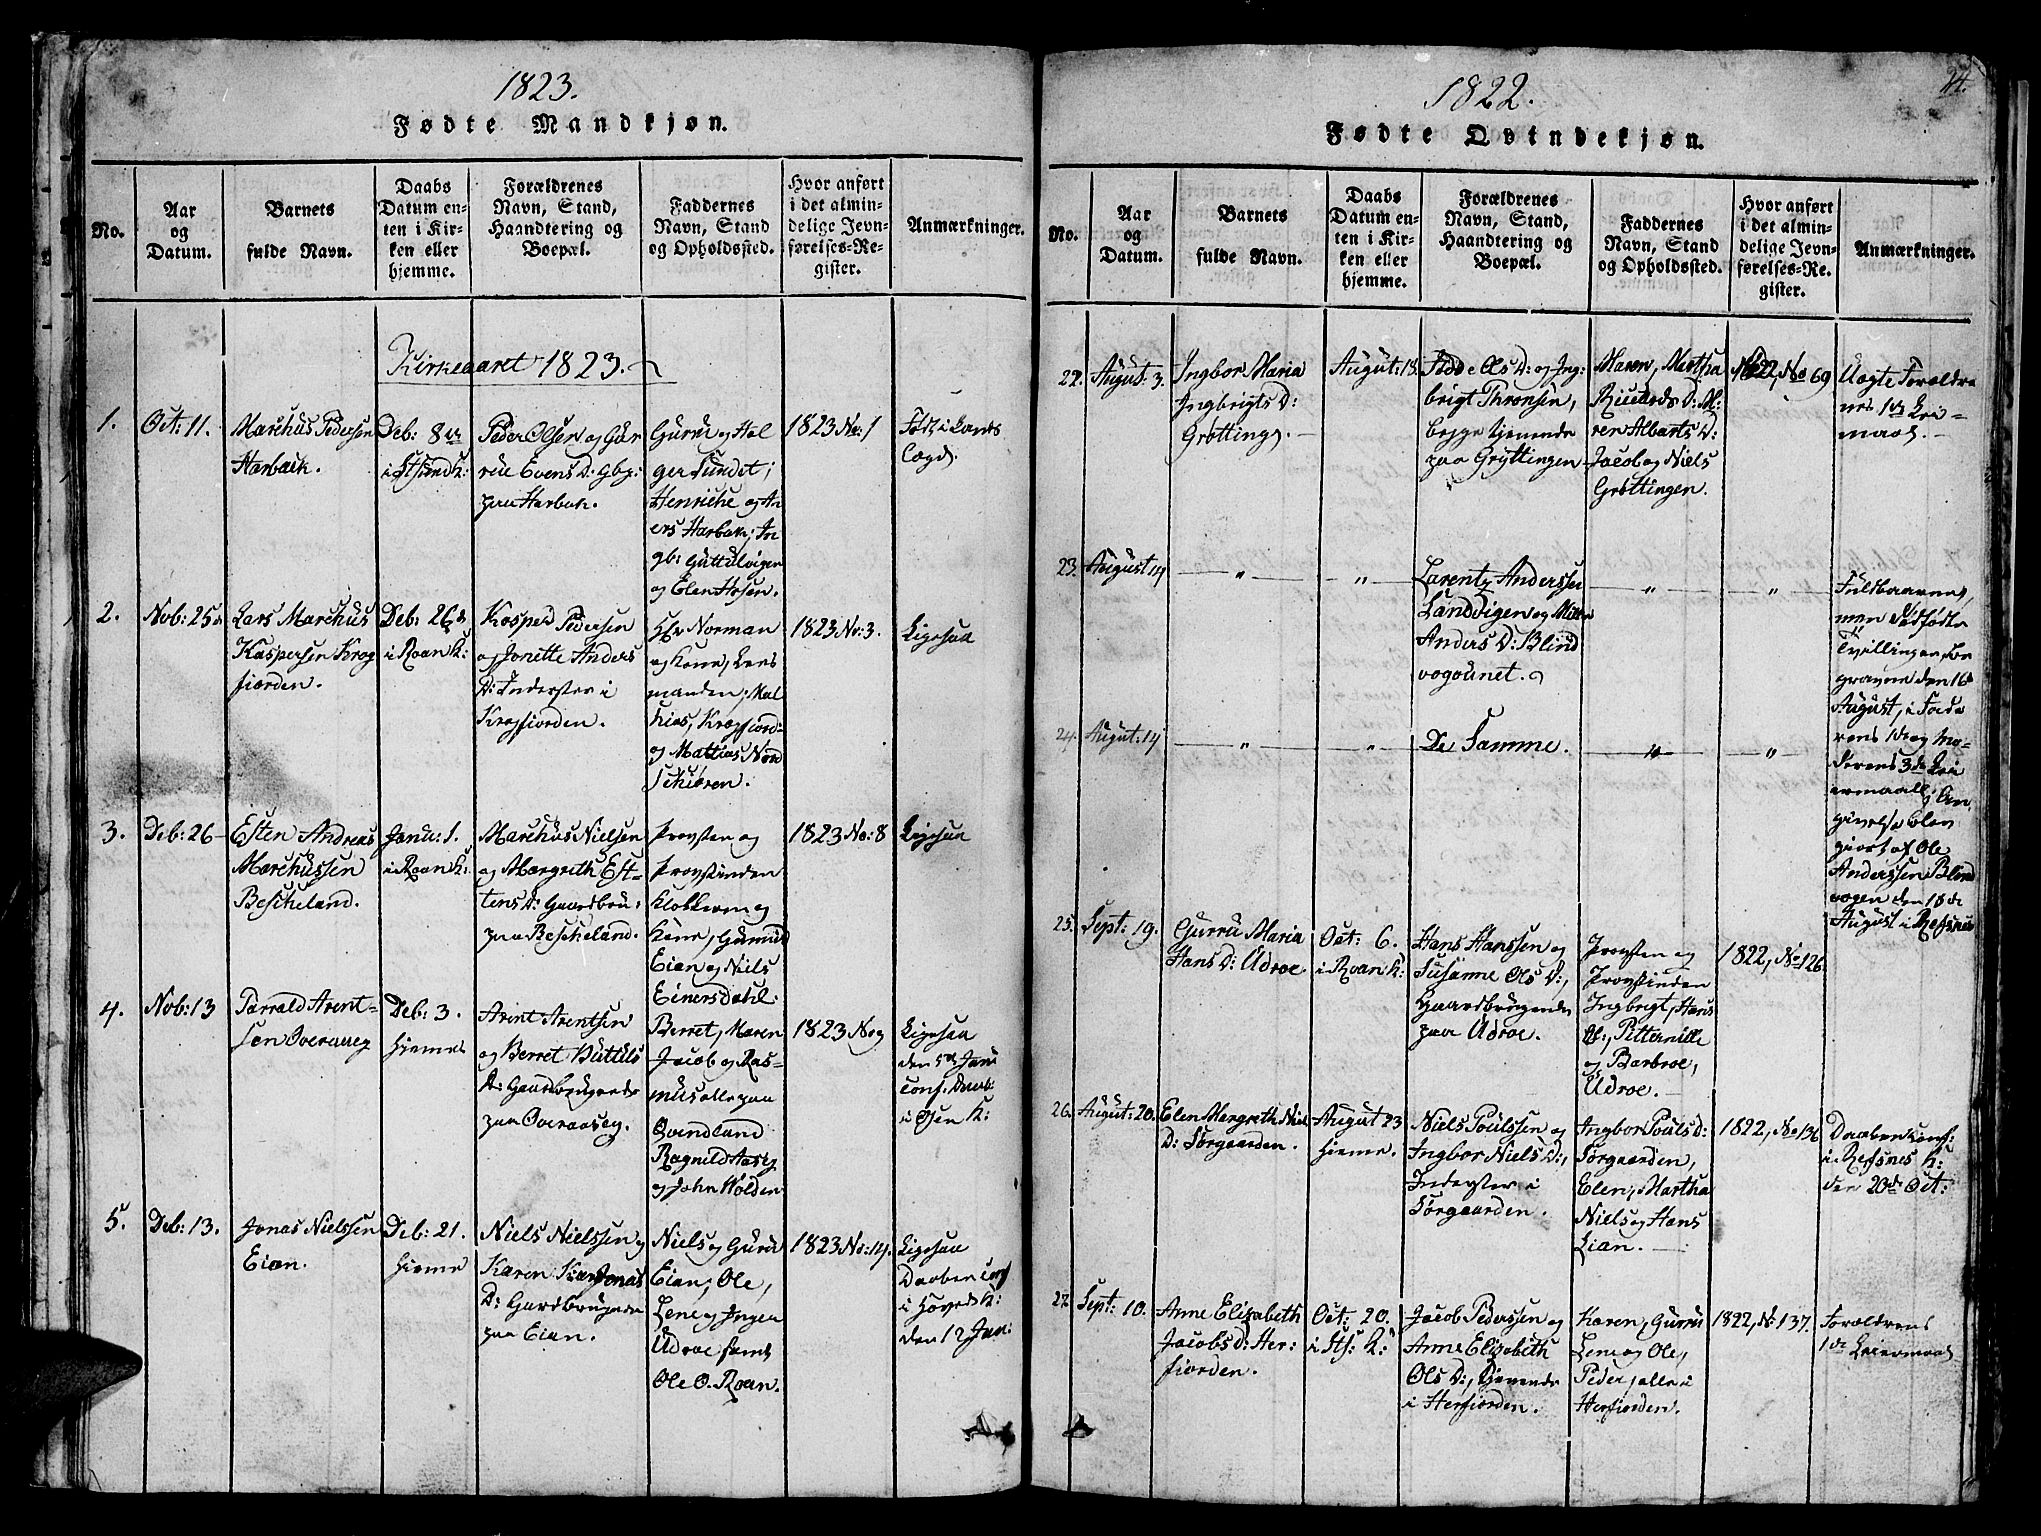 1823.
Fødte Mandkjøn.
No.
Aar
og
Datum.
Barnets
fulde Navn.
Daabs
Datum en-
ten i Kir-
ken eller
hjemme.
Forældrenes
Navn, Stand,
Haandtering og
Boepæl.
Faddernes
Navn, Stand
og Opholdssted.
Hvor anført
i det almin-
delige Jevn-
førelses-Re-
gister.
Anmærkninger.
Kirkeaaret 1823.
1.
Oct: 11.
Marchus Pedersen
Harback.
Deb: 8de
i Stsund K:
Peder Olsen og Gur
rue Evens D: gbg:
paa Harbak.
Gurru og Hol
ger Sundet;
Henriche og An
ers Harbak; In
gb: Guttulvigen
og Elen Hosen.
1823 No: 1
Født i Lands
Lægd.
2.
Nob: 25de
Lars Marchus
Kaspersen Krog
fiorden.
Deb: 26de
i Roan K:
Kasper Pedersen
og Jonette Anders
D: Inderster i
Krogfiorden.
Hr Norman
og Kone, Lens
manden, Mat
hias, Krogfiord:
og Mattias Nord
Schiøren.
1823 No: 3.
Ligesaa
3.
Deb: 26
Esten Andreas
Marchussen
Bescheland.
Janu: 1.
i Roan K:
Marchus Nielsen
og Margreth Est-
tens D: Gaardbru:
paa Bescheland.
Provsten og
Provstinden
Klokkeren og
Kone, Gunnild
Eian og Niels
Einersdahl.
1823 No: 8
Ligesaa
4.
Nob: 13
Parrald Arent-
sen Overaaseg
Deb: 3.
hieme
Arent Arentsen
og Berret Guttils
D: Gaardbrugende
paa Overaaseg.
Berret, Maren
Jacob og Ras-
mus alle paa
Qvendland
Ragnild Aaseg
og John Wolden
1823 No 9
Ligesaa
den 5de Janu
conf. Daab:
i Osen K:
5.
Deb: 13.
Jonas Nielssen
Eian.
Deb: 21.
hieme
Niels Nielssen og
Karen Jonas
D: Gardbrugende
paa Eian.
Niels og Guru
Eian, Ole,
Lene og Inger
Udroe samt
Ole O. Roan.
1823 No: 14.
Ligesaa
Daaben conf
i Hoved K:
den 12 Jan:
1822.
14.
Fødte Qvindekjøn.
No.
Aar
og
Datum.
Barnets
fulde Navn.
Daabs
Datum en-
ten i Kir-
ken eller
hjemme.
Forældrenes
Navn, Stand,
Haandtering og
Boepæl.
Faddernes
Navn, Stand
og Opholdssted.
Hvor anført
i det almin-
delige Jevn-
førelses-Re-
gister.
Anmærkninger.
22.
August: 3.
Ingbor Maria
Ingbrigts D:
Grøttings.
August: 18.
Ols D: og Ing:
brigt Thronsen,
begge tienende
paa Gryttingen
Maren, Martha
Ricards D: Ma:
ren Albarts D:
Jacob og Niels
Grøttingen.
1822, No 69
Uægte Foreldre
nes 1de Lei-
maal.
23.
August 14
"
"
Larentz Anderssen
Landvigen og
Anders D: Blind
vogounet.
"
"
Fuldbaarne,
men Dødfødte
Tvillinger, be
gravne den 16de
August, i Fade
rens 1de og Mo-
derens 3de Lei
ermaal. An
givelse blev
giort af Ole
Anderssen Blind
vogen den 18de
August i Refsnes
24.
August: 14
"
"
De Samme.
"
"
25.
Sept: 19.
Gurru Maria
Hans D: Udroe
Oct: 6.
i Roan K:
Hans Hanssen og
Susanne Ols D:,
Gaardbrugende
paa Udroe.
Provsten og
Provstinden
Ingbrigt, Hans
O:, Pitternille
og Barbroe,
Udroe.
1822, No 126
26.
August: 20.
Elen Margreth Niels
D: Sørgaarden.
August 23
hieme.
Niels Poulssen og
Ingbor Niels D:,
Inderster i
Sørgaarden.
Ingbor Pouls D:
Sørgaarden,
Elen, Martha
Niels og Hans
Lian.
1822, No 136
Daaben conf:
i Refsnes K:
den 20de Oct:
27.
Sept: 10.
Anne Elizabeth
Jacobs D: Her:
fiorden.
Oct: 20.
i Sts: K:
Jacob Pederssen og
Anne Elizabeth
Ols D:, Tienende
i Herfiorden.
Karen, Gurru
Lene og Ole,
Peder, alle i
Herfiorden.
1822, No 137.
Foreldrens
1de Leiermaal